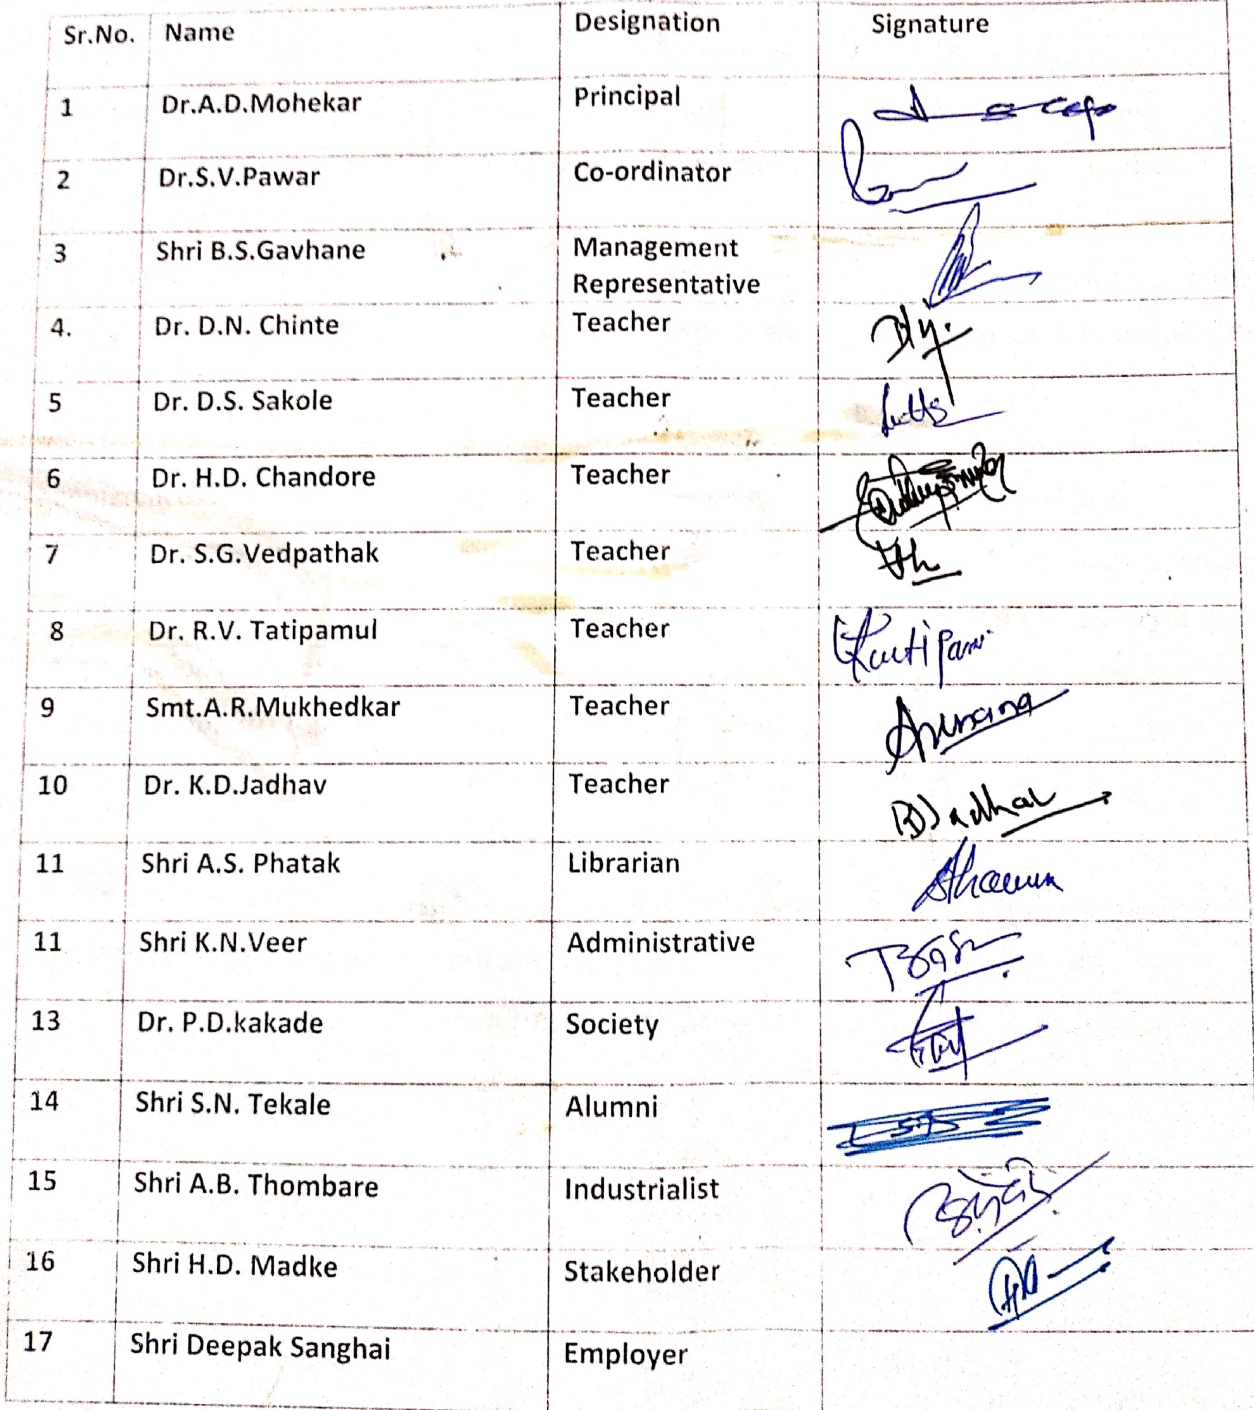 Sr.No. Name Designation Signature
1 Dr.A.D.Mohekar Principal
2 Dr.S.V.Pawar Co-ordinator
3 Shri B.S.Gavhane Management
Representative
4. Dr. D.N. Chinte Teacher
5 Dr. D.S. Sakole Teacher
6 Dr. H.D. Chandore Teacher
7 Dr. S.G.Vedpathak Teacher
8 Dr. R.V. Tatipamul Teacher
9 Smt.A.R.Mukhedkar Teacher
10 Dr. K.D.Jadhav Teacher
11 Shri A.S. Phatak Librarian
11 Shri K.N.Veer Administrative
13 Dr. P.D.kakade Society
14 Shri S.N. Tekale Alumni
15 Shri A.B. Thombare Industrialist
16 Shri H.D. Madke Stakeholder
17 Shri Deepak Sanghai Employer